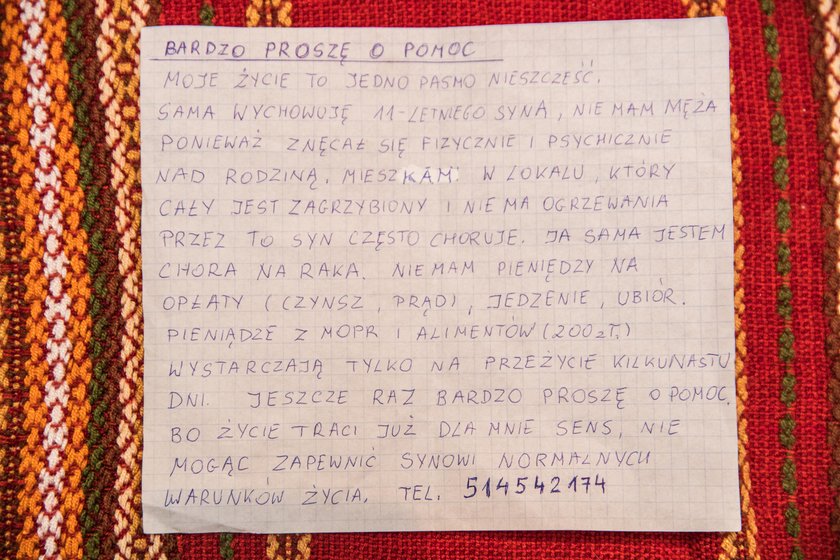 BARDZO PROSZĘ O POMOC
MOJE ŻYCIE TO JEDNO PASMO NIESZCZEŚĆ.
SAMA WYCHOWUJĘ 11-LETNIEGO SYNA, NIE MAM MĘŻA
PONIEWAŻ ZNĘCAŁ SIĘ FIZYCZNIE I PSYCHICZNIE
NAD RODZINĄ. MIESZKAM W LOKALU, KTÓRY
CAŁY JEST ZAGRZYBIONY I NIE MA OGRZEWANIA
PRZEZ TO SYN CZĘSTO CHORUJE. JA SAMA JESTEM
CHORA NA RAKA. NIE MAM PIENIĘDZY NA
OPŁATY (CZYNSZ, PRĄD), JEDZENIE, UBIÓR.
PIENIĄDZE Z MOPR I ALIMENTÓW (200zŁ)
WYSTARCZAJĄ TYLKO NA PRZEŻYCIE KILKUNASTU
DNI. JESZCZE RAZ BARDZO PROSZĘ O POMOC.
BO ŻYCIE TRACI JUŻ DLA MNIE SENS, NIE
MOGĄC ZAPEWNIĆ SYNOWI NORMALNYCH
WARUNKÓW ŻYCIA. TEL. 514542174